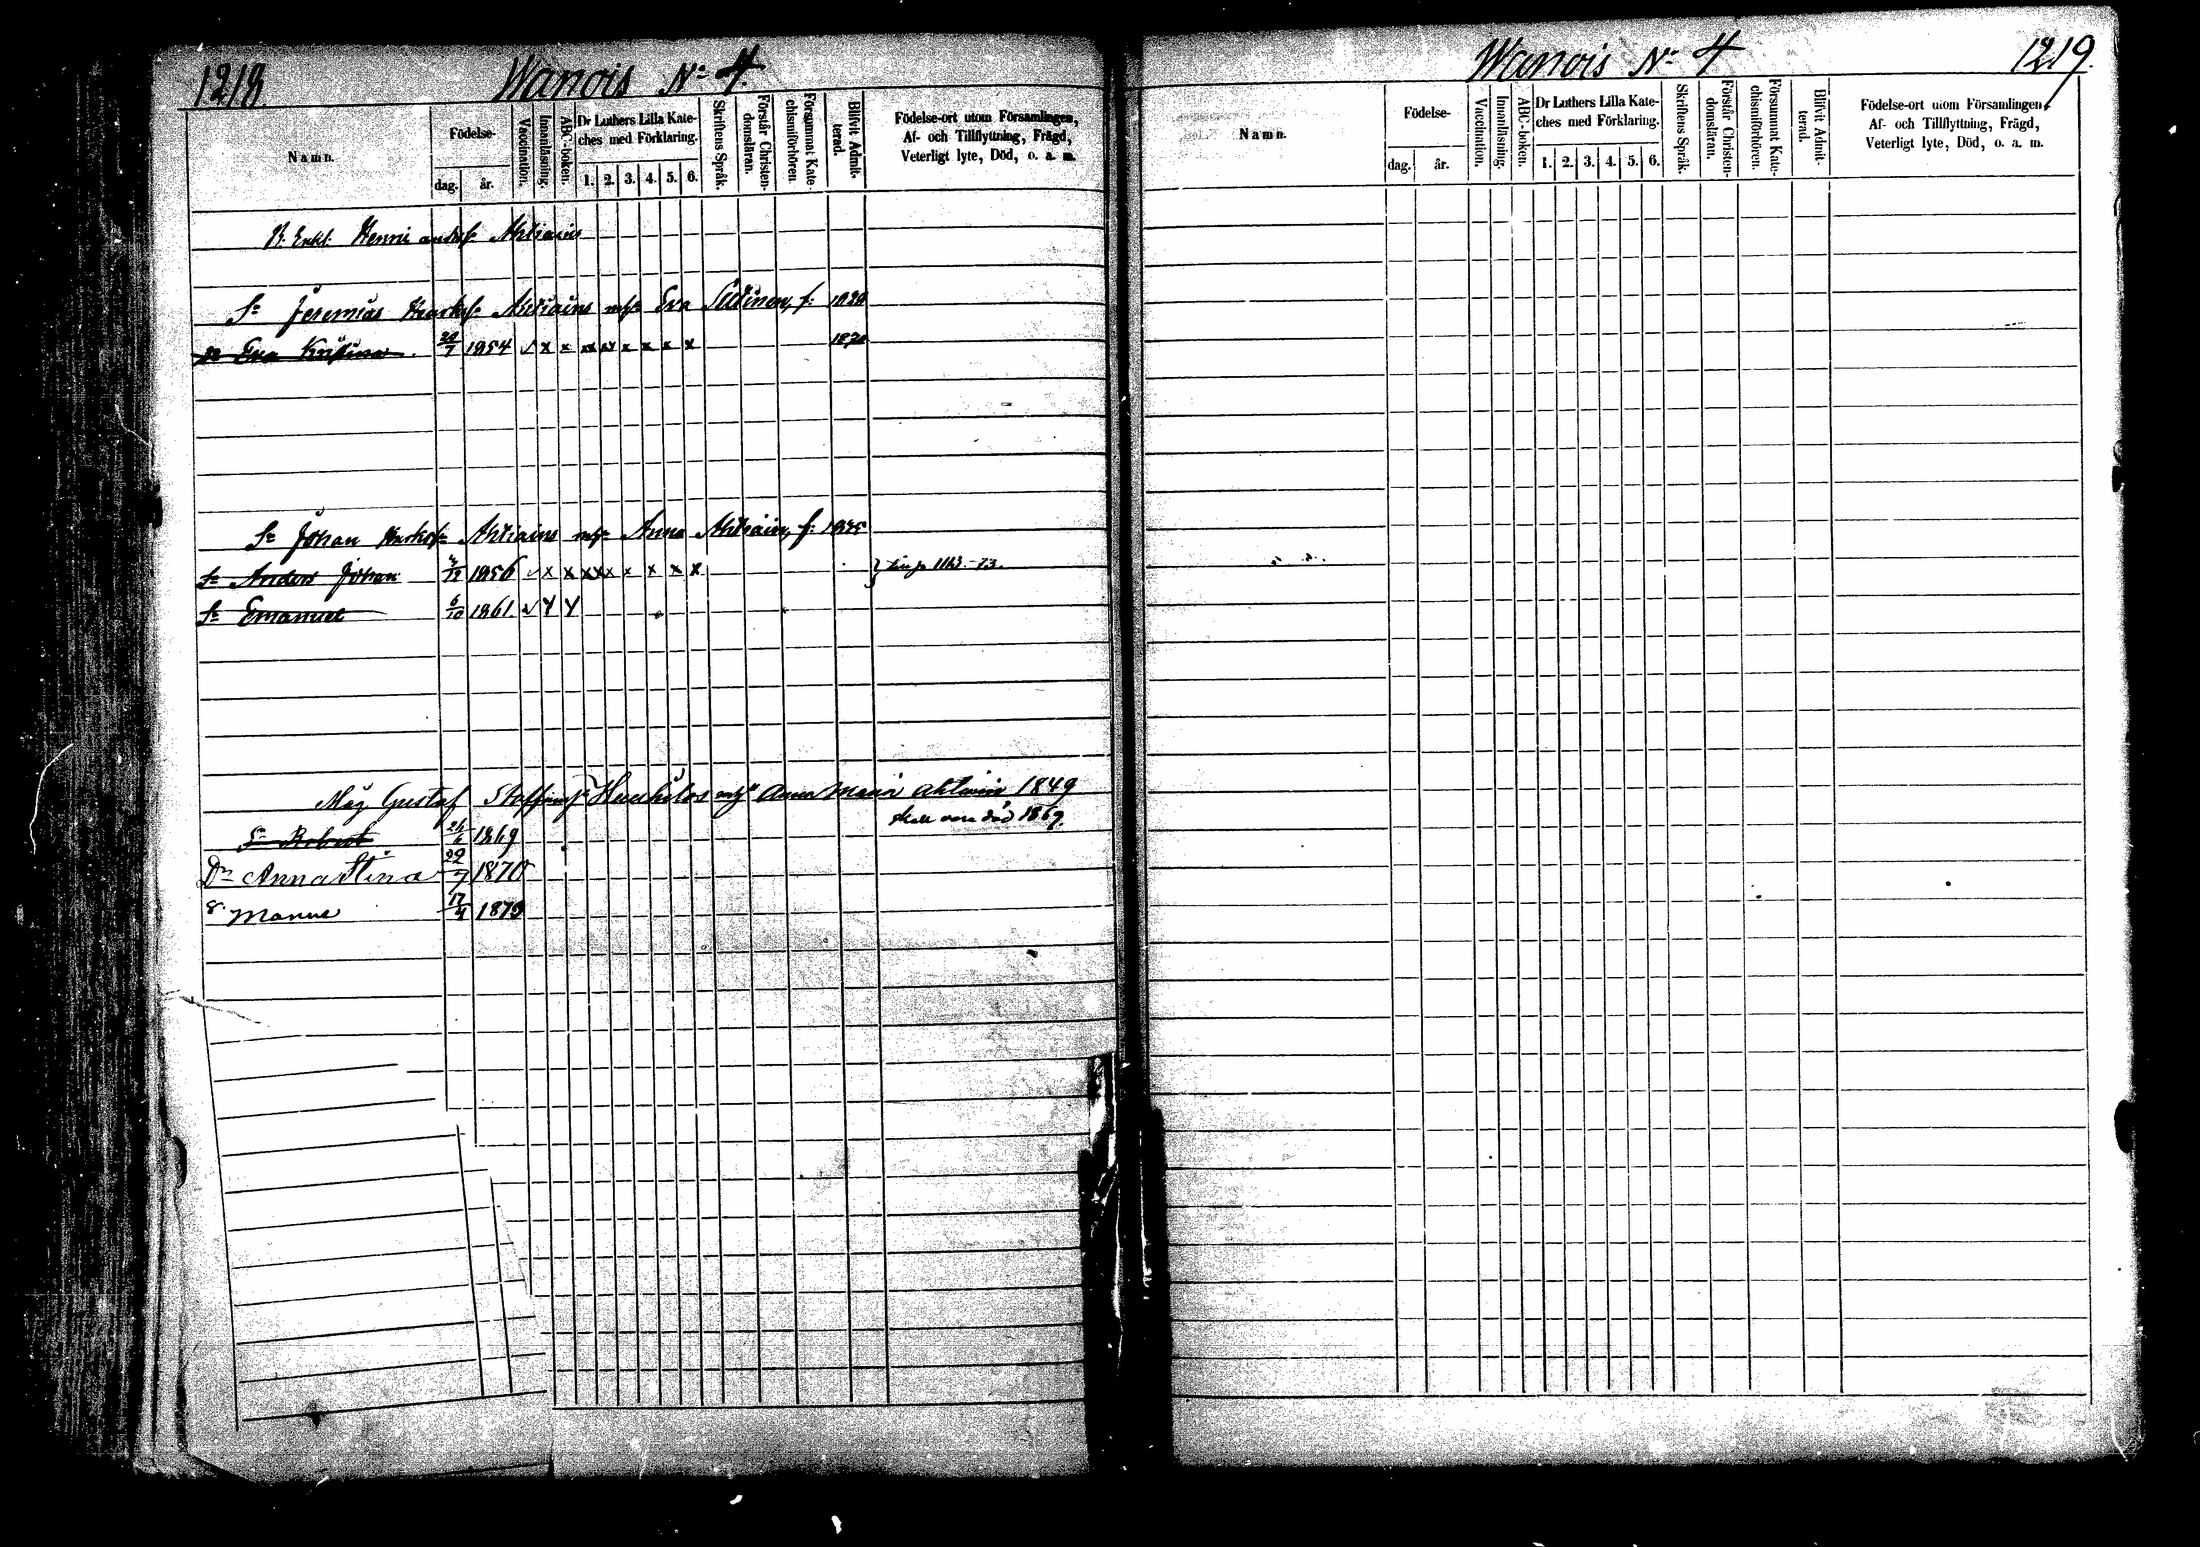 1218
Wanois No 4.
Namn.
Födelse-
dag.
år.
Vaccination.
Innanläsning.
ABC-boken.
Dr Luthers Lilla Kate-
ches med Förklaring.
1. 2. 3. 4. 5. 6.
Skriftens Språk.
Förstår Christen-
domsläran.
Försummat Kate-
chismiförhören.
Blifvit Admit-
terad.
Födelse-ort utom Församlingen,
Af- och Tillflyttning, Frägd,
Veterligt lyte, Död, o. a. m.
Henric Ahtiains
Sn Jeremias Ahtiains Eva f:
Eva Kristina 1854 x x x x x x
Sn Johan Ahtiains Anna Ahtiain, f:
Sn Anders Johan 1856 x x x x x x x x
Sn Emanuel 6/10 1861.
Måg Gustaf Anna Maria Ahtiain 1849
skall vara död 1869.
Sn Robert 1869
Dn Anna Stina 29/7 1870
Manue 17/4 1873
Wanois No 4
1219.
Namn.
Födelse-
dag.
år.
Vaccination.
Innanläsning.
ABC-boken.
Dr Luthers Lilla Kate-
ches med Förklaring.
1. 2. 3. 4. 5. 6.
Skriftens Språk.
Förstår Christen-
domsläran.
Försummat Kate-
chismiförhören.
Blifvit Admit-
terad.
Födelse-ort utom Församlingen,
Af- och Tillflyttning, Frägd,
Veterligt lyte, Död, o. a. m.